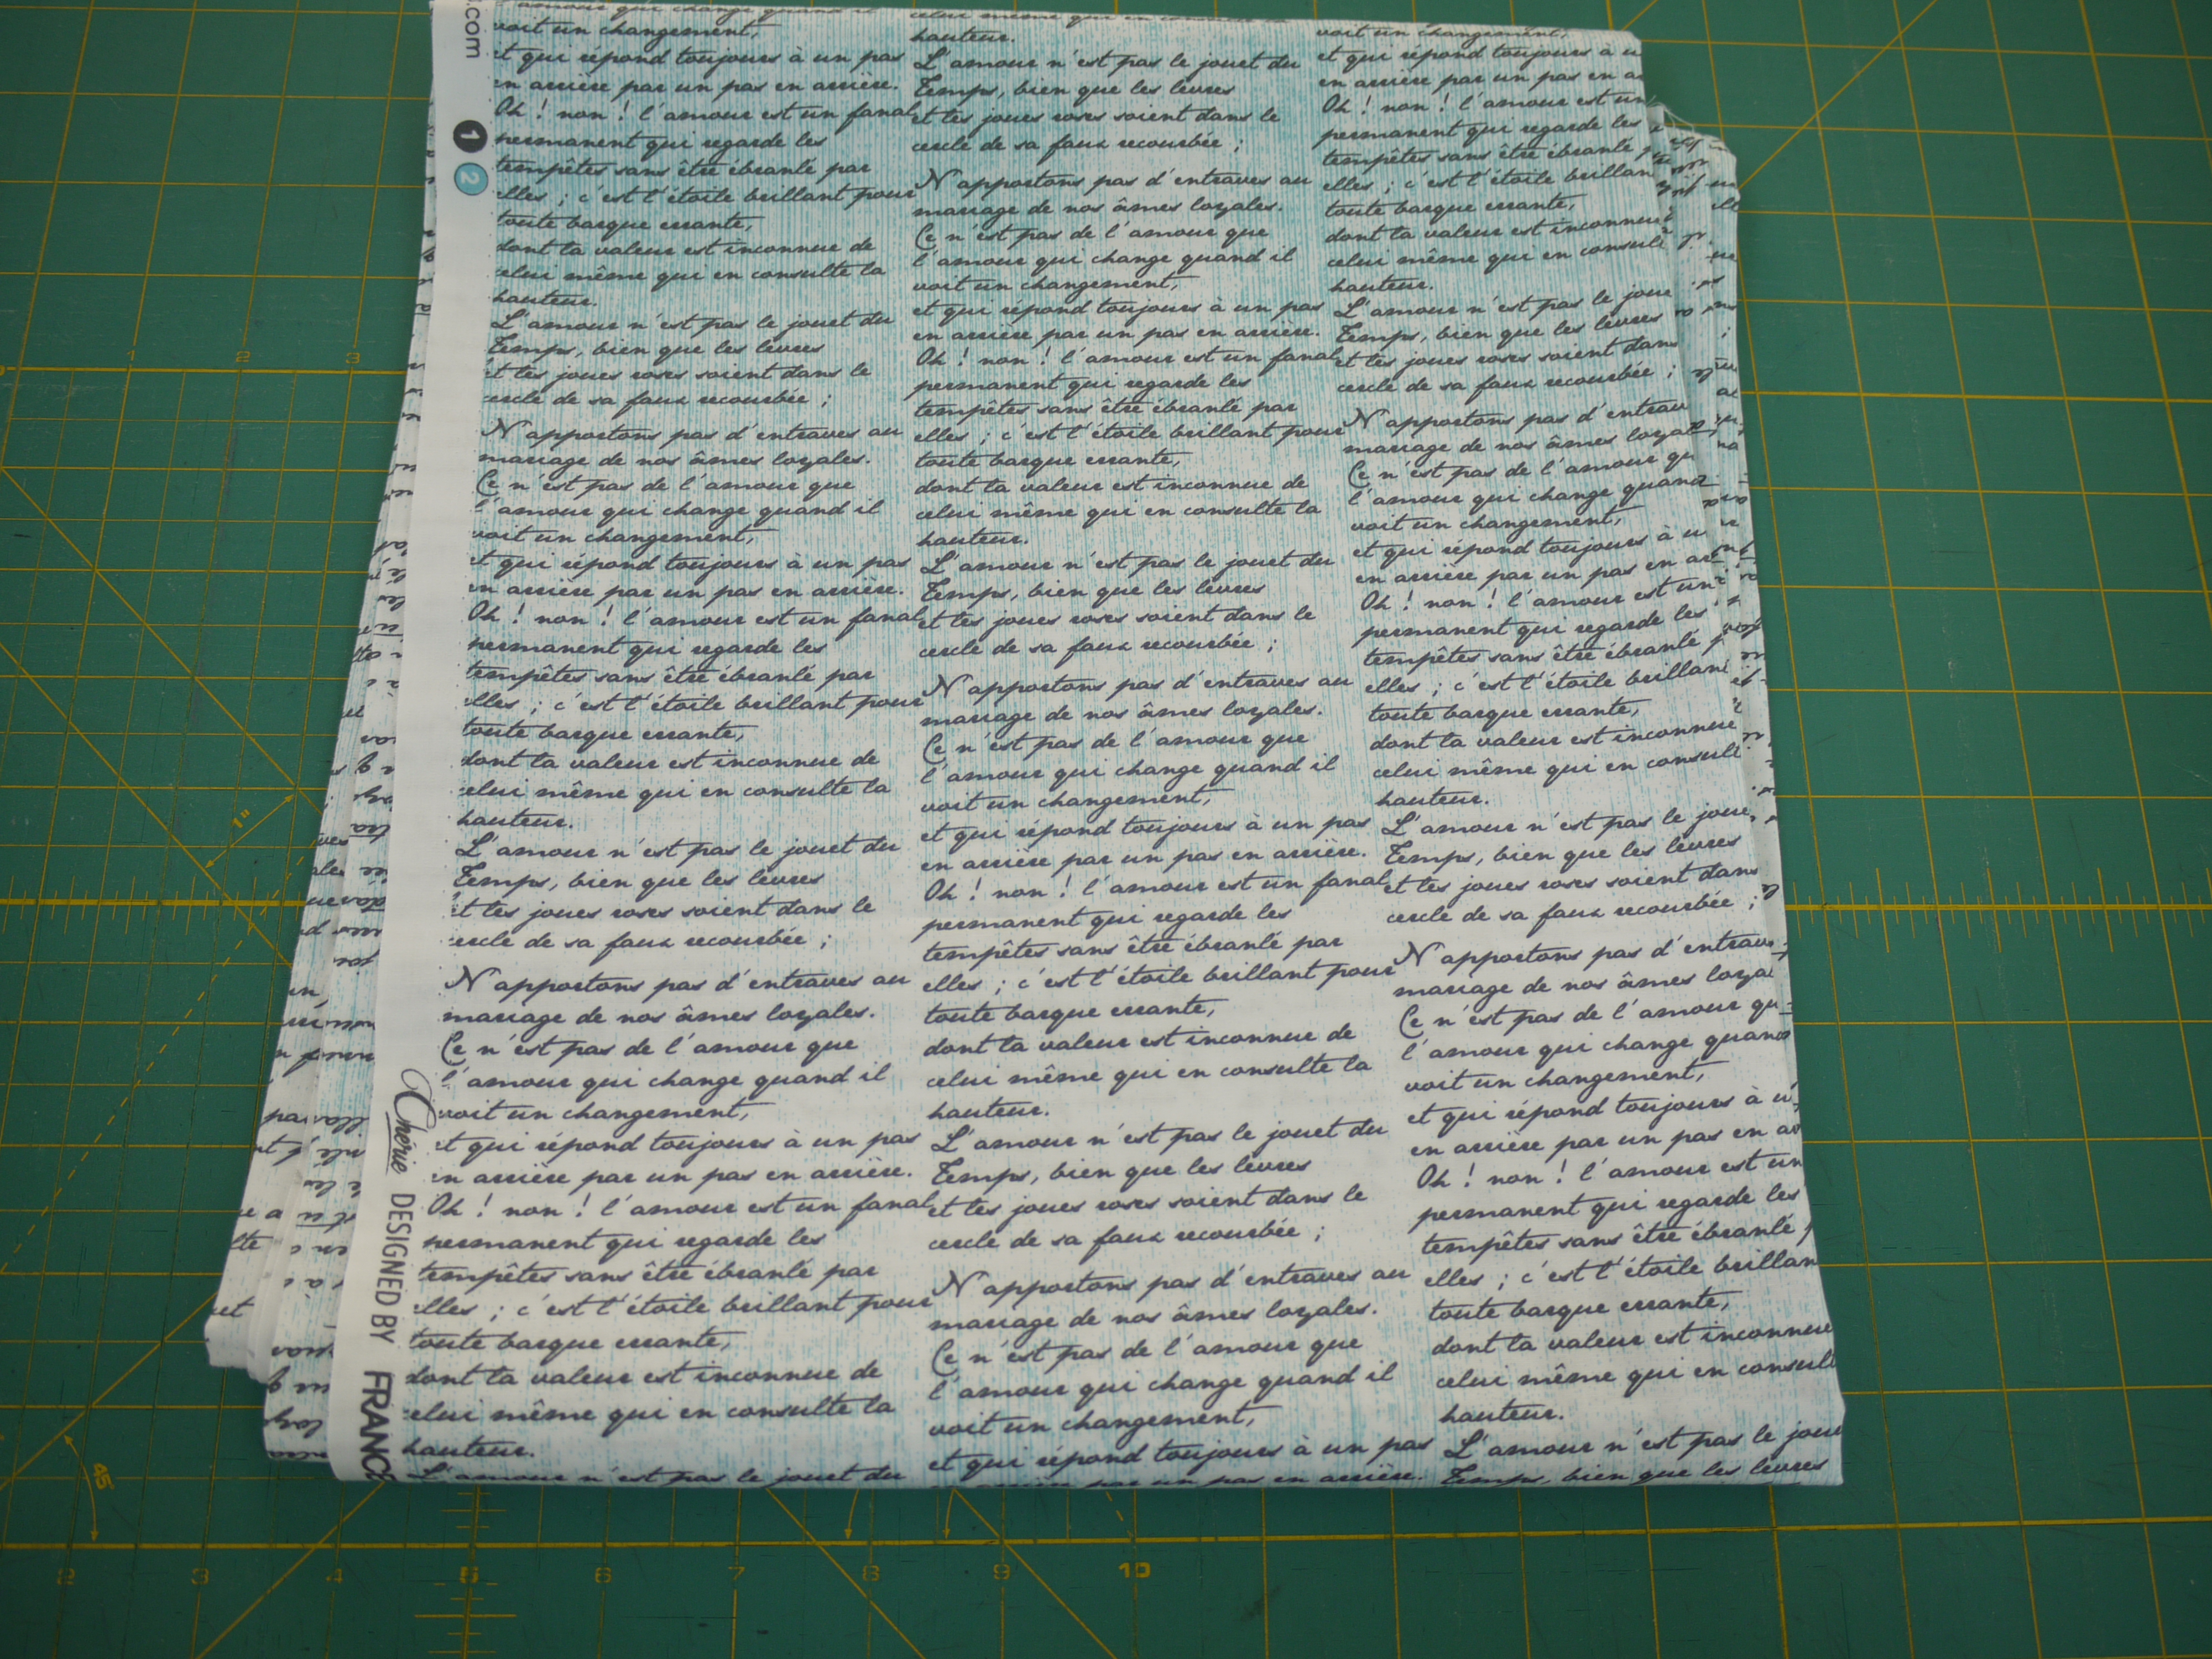 .com
1
2
voit un changement,
et qui répond toujours à un pas
en arrière par un pas en arrière.
Oh ! non ! l'amour est un fanal
permanent qui regarde les
tempêtes sans être ébranlé par
elles ; c'est l'étoile brillant pour
toute barque errante,
dont la valeur est inconnue de
celui même qui en consulte la
hauteur.
L'amour n'est pas le jouet du
Temps, bien que les lèvres
et les joues roses soient dans le
cercle de sa faux recourbée ;
N'apportons pas d'entraves au
mariage de nos âmes loyales.
Ce n'est pas de l'amour que
l'amour qui change quand il
voit un changement,
et qui répond toujours à un pas
en arrière par un pas en arrière.
Oh ! non ! l'amour est un fanal
permanent qui regarde les
tempêtes sans être ébranlé par
elles ; c'est l'étoile brillant pour
toute barque errante,
dont la valeur est inconnue de
celui même qui en consulte la
hauteur.
L'amour n'est pas le jouet du
Temps, bien que les lèvres
et les joues roses soient dans le
cercle de sa faux recourbée ;
N'apportons pas d'entraves au
mariage de nos âmes loyales.
Ce n'est pas de l'amour que
l'amour qui change quand il
voit un changement,
et qui répond toujours à un pas
en arrière par un pas en arrière.
Oh ! non ! l'amour est un fanal
permanent qui regarde les
tempêtes sans être ébranlé par
elles ; c'est l'étoile brillant pour
toute barque errante,
dont la valeur est inconnue de
celui même qui en consulte la
hauteur.
L'amour n'est pas le jouet du
celui même qui en consulte la
hauteur.
L'amour n'est pas le jouet du
Temps, bien que les lèvres
et les joues roses soient dans le
cercle de sa faux recourbée ;
N'apportons pas d'entraves au
mariage de nos âmes loyales.
Ce n'est pas de l'amour que
l'amour qui change quand il
voit un changement,
et qui répond toujours à un pas
en arrière par un pas en arrière.
Oh ! non ! l'amour est un fanal
permanent qui regarde les
tempêtes sans être ébranlé par
elles ; c'est l'étoile brillant pour
toute barque errante,
dont la valeur est inconnue de
celui même qui en consulte la
hauteur.
L'amour n'est pas le jouet du
Temps, bien que les lèvres
et les joues roses soient dans le
cercle de sa faux recourbée ;
N'apportons pas d'entraves au
mariage de nos âmes loyales.
Ce n'est pas de l'amour que
l'amour qui change quand il
voit un changement,
et qui répond toujours à un pas
en arrière par un pas en arrière.
Oh ! non ! l'amour est un fanal
permanent qui regarde les
tempêtes sans être ébranlé par
elles ; c'est l'étoile brillant pour
toute barque errante,
dont la valeur est inconnue de
celui même qui en consulte la
hauteur.
L'amour n'est pas le jouet du
Temps, bien que les lèvres
et les joues roses soient dans le
cercle de sa faux recourbée ;
N'apportons pas d'entraves au
mariage de nos âmes loyales.
Ce n'est pas de l'amour que
l'amour qui change quand il
voit un changement,
et qui répond toujours à un pas
en arrière par un pas en arrière.
voit un changement,
et qui répond toujours à u
en arrière par un pas en a
Oh ! non ! l'amour est un
permanent qui regarde les
tempêtes sans être ébranlé
elles ; c'est l'étoile brillan
toute barque errante,
dont la valeur est inconnue
celui même qui en consult
hauteur.
L'amour n'est pas le joue
Temps, bien que les lèvres
et les joues roses soient dans
cercle de sa faux recourbée ;
N'apportons pas d'entrav
mariage de nos âmes loyal
Ce n'est pas de l'amour qu
l'amour qui change quand
voit un changement,
et qui répond toujours à u
en arrière par un pas en ar
Oh ! non ! l'amour est un
permanent qui regarde les
tempêtes sans être ébranlé p
elles ; c'est l'étoile brillant
toute barque errante,
dont la valeur est inconnue
celui même qui en consult
hauteur.
L'amour n'est pas le joue
Temps, bien que les lèvres
et les joues roses soient dans
cercle de sa faux recourbée ;
N'apportons pas d'entrav
mariage de nos âmes loyal
Ce n'est pas de l'amour qu
l'amour qui change quand
voit un changement,
et qui répond toujours à u
en arrière par un pas en ar
Oh ! non ! l'amour est un
permanent qui regarde les
tempêtes sans être ébranlé
elles ; c'est l'étoile brillan
toute barque errante,
dont la valeur est inconnue
celui même qui en consult
hauteur.
L'amour n'est pas le joue
Temps, bien que les lèvres
Chérie DESIGNED BY FRANC
1 2 3
1"
45°
2 3 4 5 6 7 8 9 10